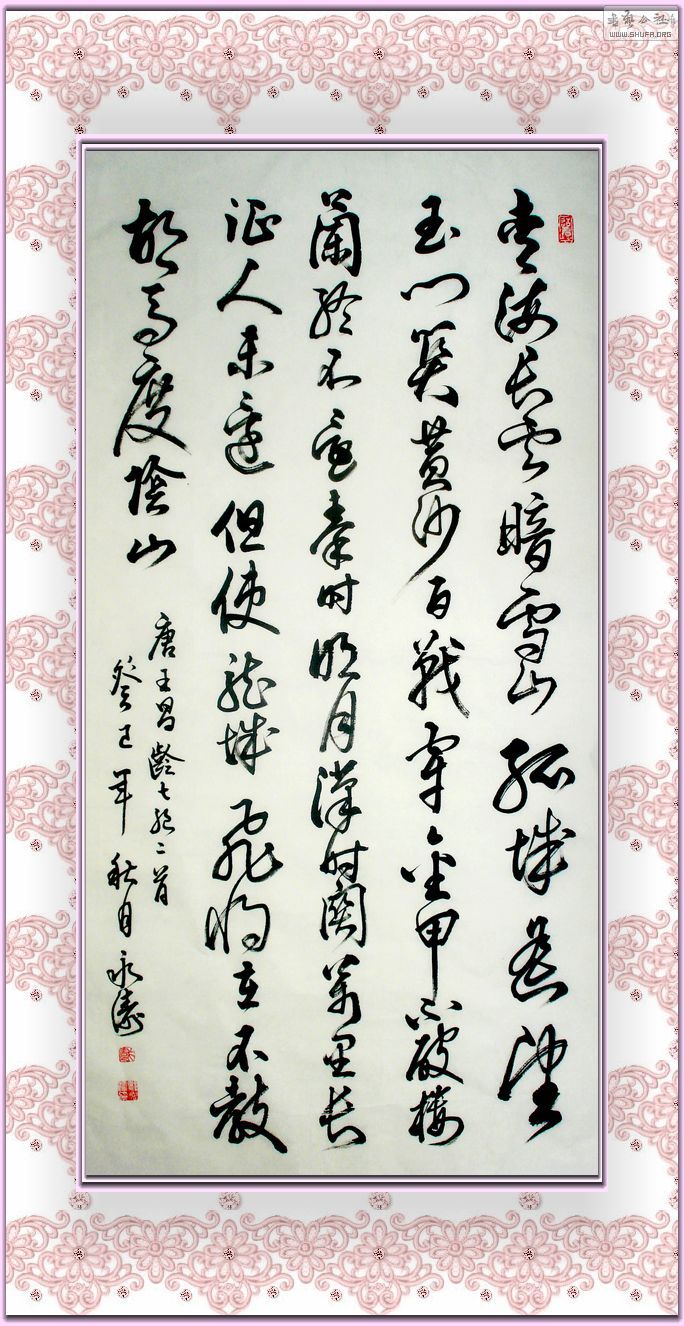 青海长云暗雪山孤城遥望
玉门关黄沙百戰穿金甲不破楼
蘭终不還秦时明月漢时関萬里长
征人未還但使龙城飛将在不教
胡马度陰山
唐王昌龄七绝二首
癸巳年秋月永涛
书艺公社
WWW.SHUFA.ORG